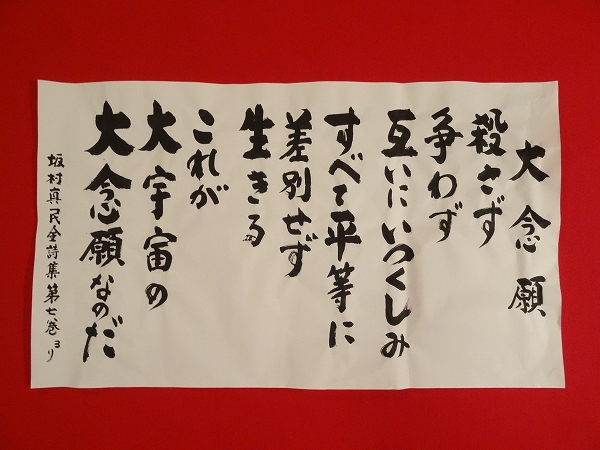 大念願
殺さず
争わず
互いにいつくしみ
すべて平等に
差別せず
生きる
これが
大宇宙の
大念願なのだ
坂村真民全詩集第七巻ヨリ